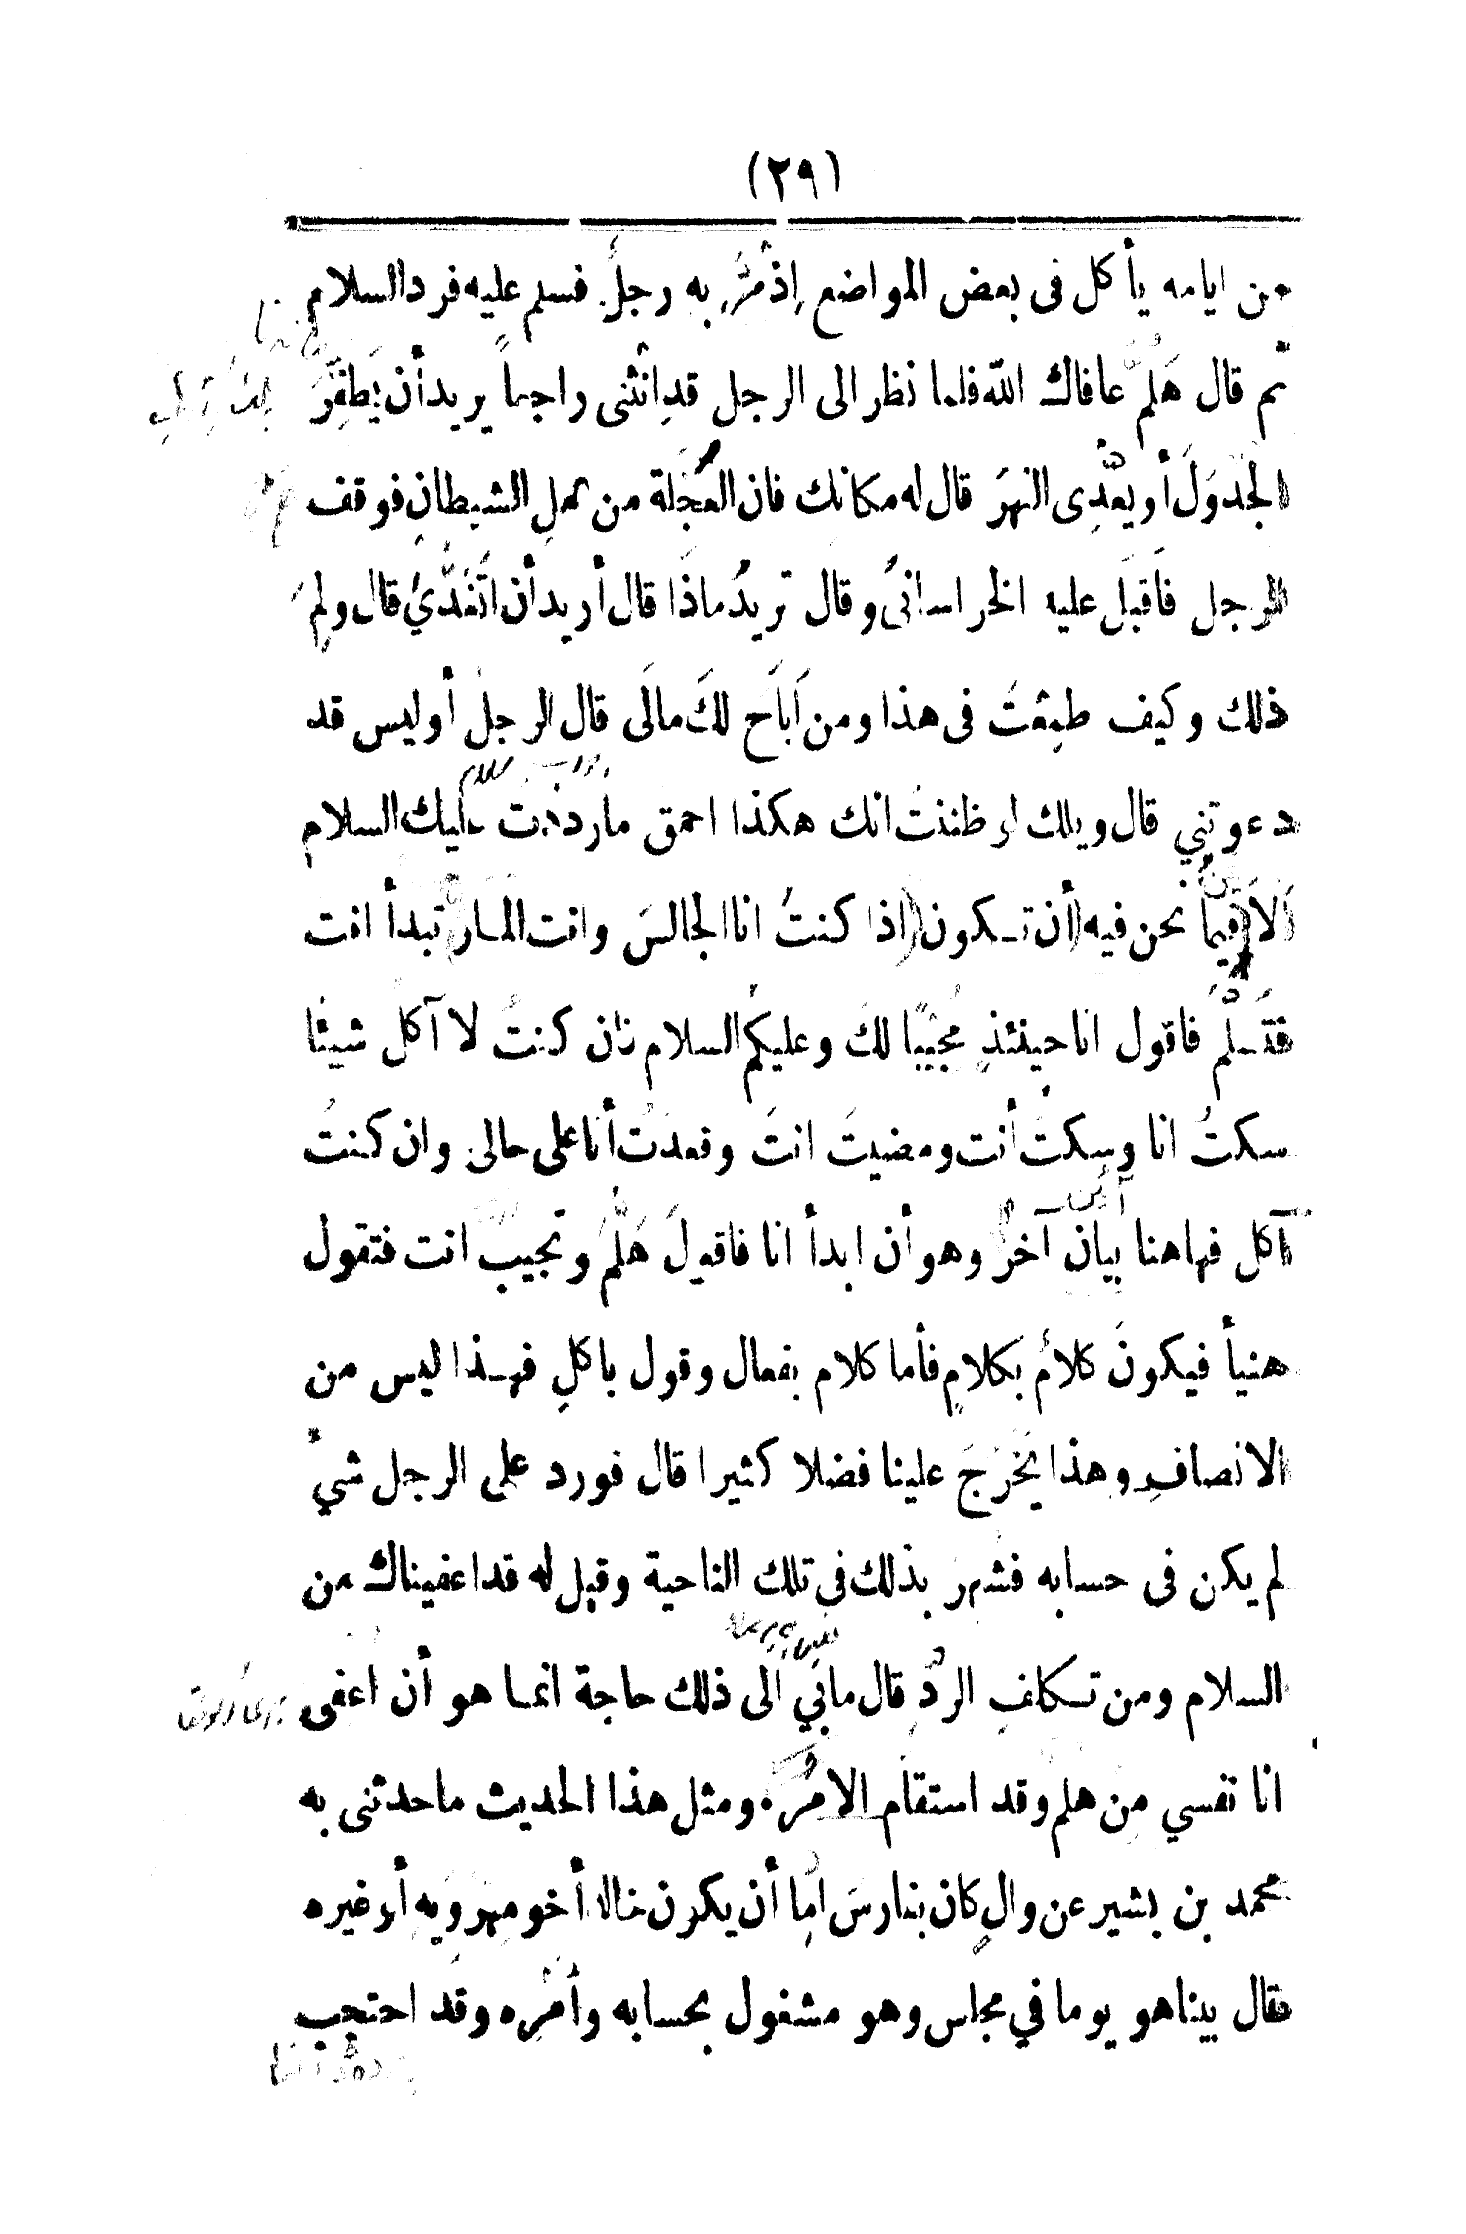 (٢٩)
من ايامه يأكل فى بعض المواضع إذ مَرَّ به رجلٌ فسلم عليه فرد السلام
ثم قال هَلمَّ عافاك الله فلما نظر الى الرجل قدِ انثنى راجعاً يريد أن يَطفِرَ
الجَدوَلَ أو يعدِّى النهرَ قال له مكانك فان العَجَلة من عملِ الشيطانِ فوقف
الرجل فأقبَل عليه الخراسانىُ وقال تريدُ ماذَا قال أريد أن اتَغَدَّيُ قال ولِمَ
ذلك وكيف طمِعْتَ فى هذا ومن أَباَح لكَ مالَى قال الرجلُ أوليس قد
دعوتني قال ويلك لو ظننتُ انك هكذا احمق مارددتُ عليك السلام
الآ فيما نحن فيه أن تـكون اذا كنتُ انا الجالسَ وانت المـار تبدأ انت
فتَـسلِّم فاقول انا حينئذٍ مجيبًا لكَ وعليكُم السلام فان كنتُ لا آكل شيئًا
سكتُ انا وسكتَّ أنت ومضيتَ انتَ وقعدتُ أنا على حالى وان كنتُ
آكل فهاهنا بيان آخرُ وهو أن ابدأ انا فاقولَ هَلُمَّ وتجيب انت فتقول
هنيأ فيكونَ كلامٌ بكلامٍ فأما كلام بفعال وقول باكلٍ فهـذا ليس من
الانصافِ وهذا يَخرُجَ علينا فضلا كثيرا قال فورد على الرجل شيْءٌ
لم يكن فى حسابه فشهر بذلك فى تلك الناحية وقيل له قد اعفيناك من
السلام ومن تـكلفِ الردِّ قال مابَي الى ذلك حاجة انمـا هو أن اعفى
انا نفسي من هلم وقد استقام الامْرُ. ومثل هذا الحديث ماحدثنى به
محمد بن بشير عن والٍ كان بفارسَ اِمَّا أن يكون خالا أخو مِهرَوَيهِ أو غيره
قال بيناهو يوما في مجلس وهو مشغول بحسابه وأمْرِه وقد احتجب